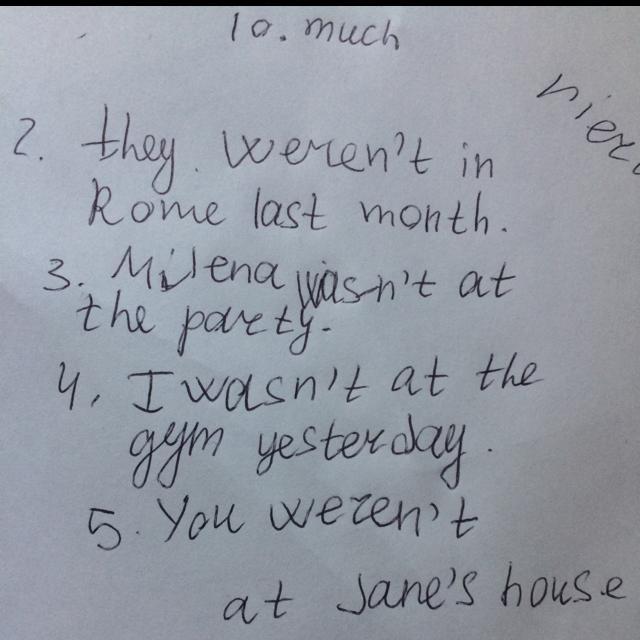 10. much
2. they. weren't in
Rome last month.
3. Milena wasn't at
the party.
4. I wasn't at the
gym yesterday.
5. You weren't
at Jane's house